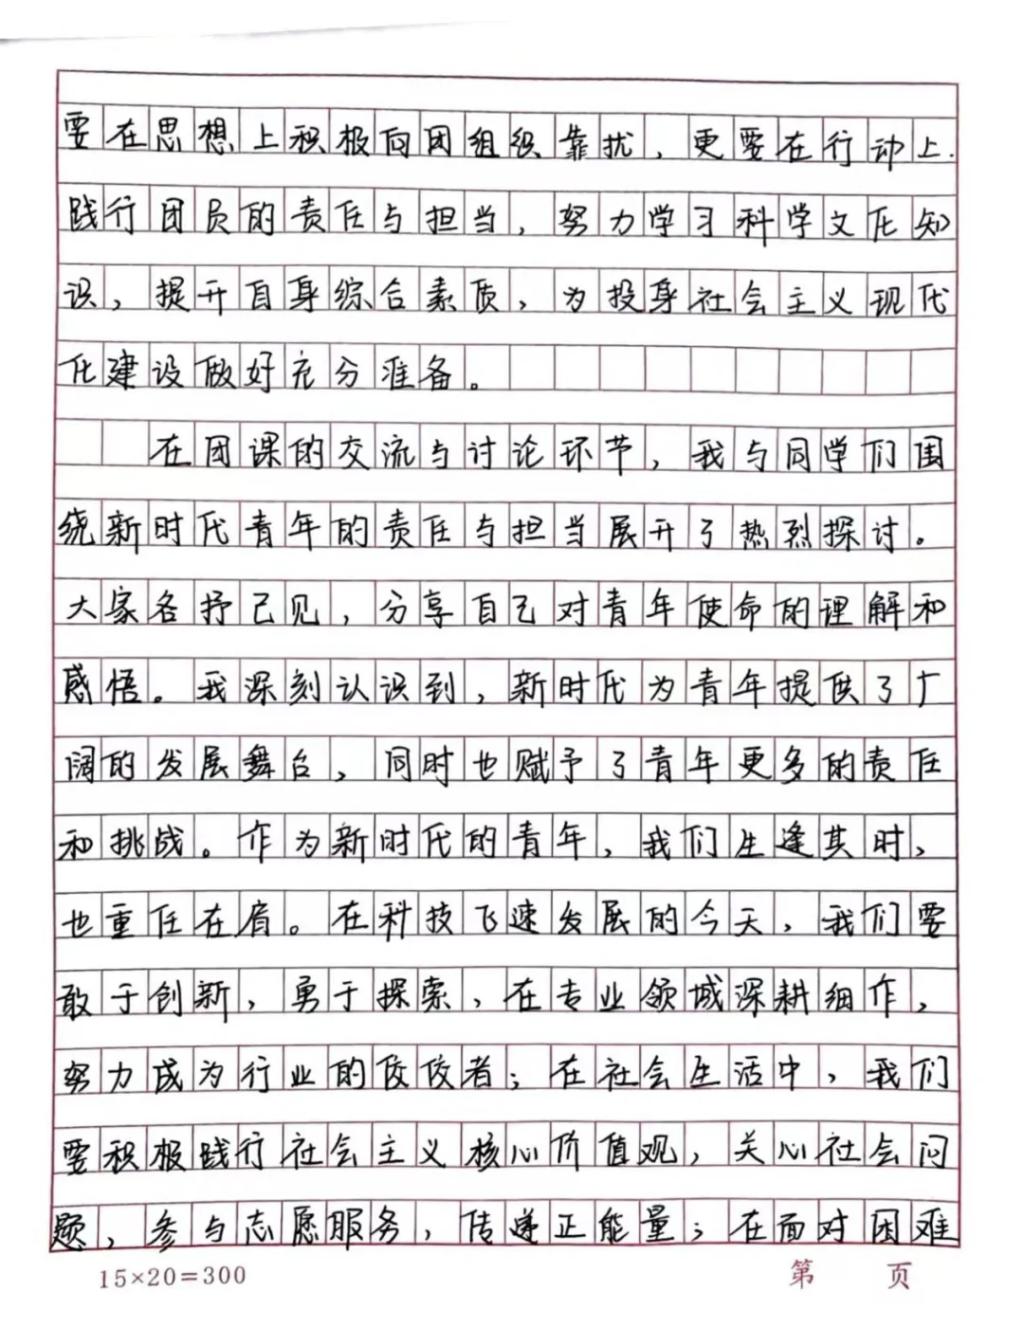 要在思想上积极向团组织靠扰，更要在行动上
践行团员的责任与担当，努力学习科学文化知
识，提升自身综合素质，为投身社会主义现代
化建设做好充分准备。
在团课的交流与讨论环节，我与同学们围
绕新时代青年的责任与担当展开了热烈探讨。
大家各抒己见，分享自己对青年使命的理解和
感悟。我深刻认识到，新时代为青年提供了广
阔的发展舞台，同时也赋予了青年更多的责任
和挑战。作为新时代的青年，我们生逢其时，
也重任在肩。在科技飞速发展的今天，我们要
敢于创新，勇于探索，在专业领域深耕细作，
努力成为行业的佼佼者；在社会生活中，我们
要积极践行社会主义核心价值观，关心社会问
题，参与志愿服务，传递正能量；在面对困难
15×20=300
第 页